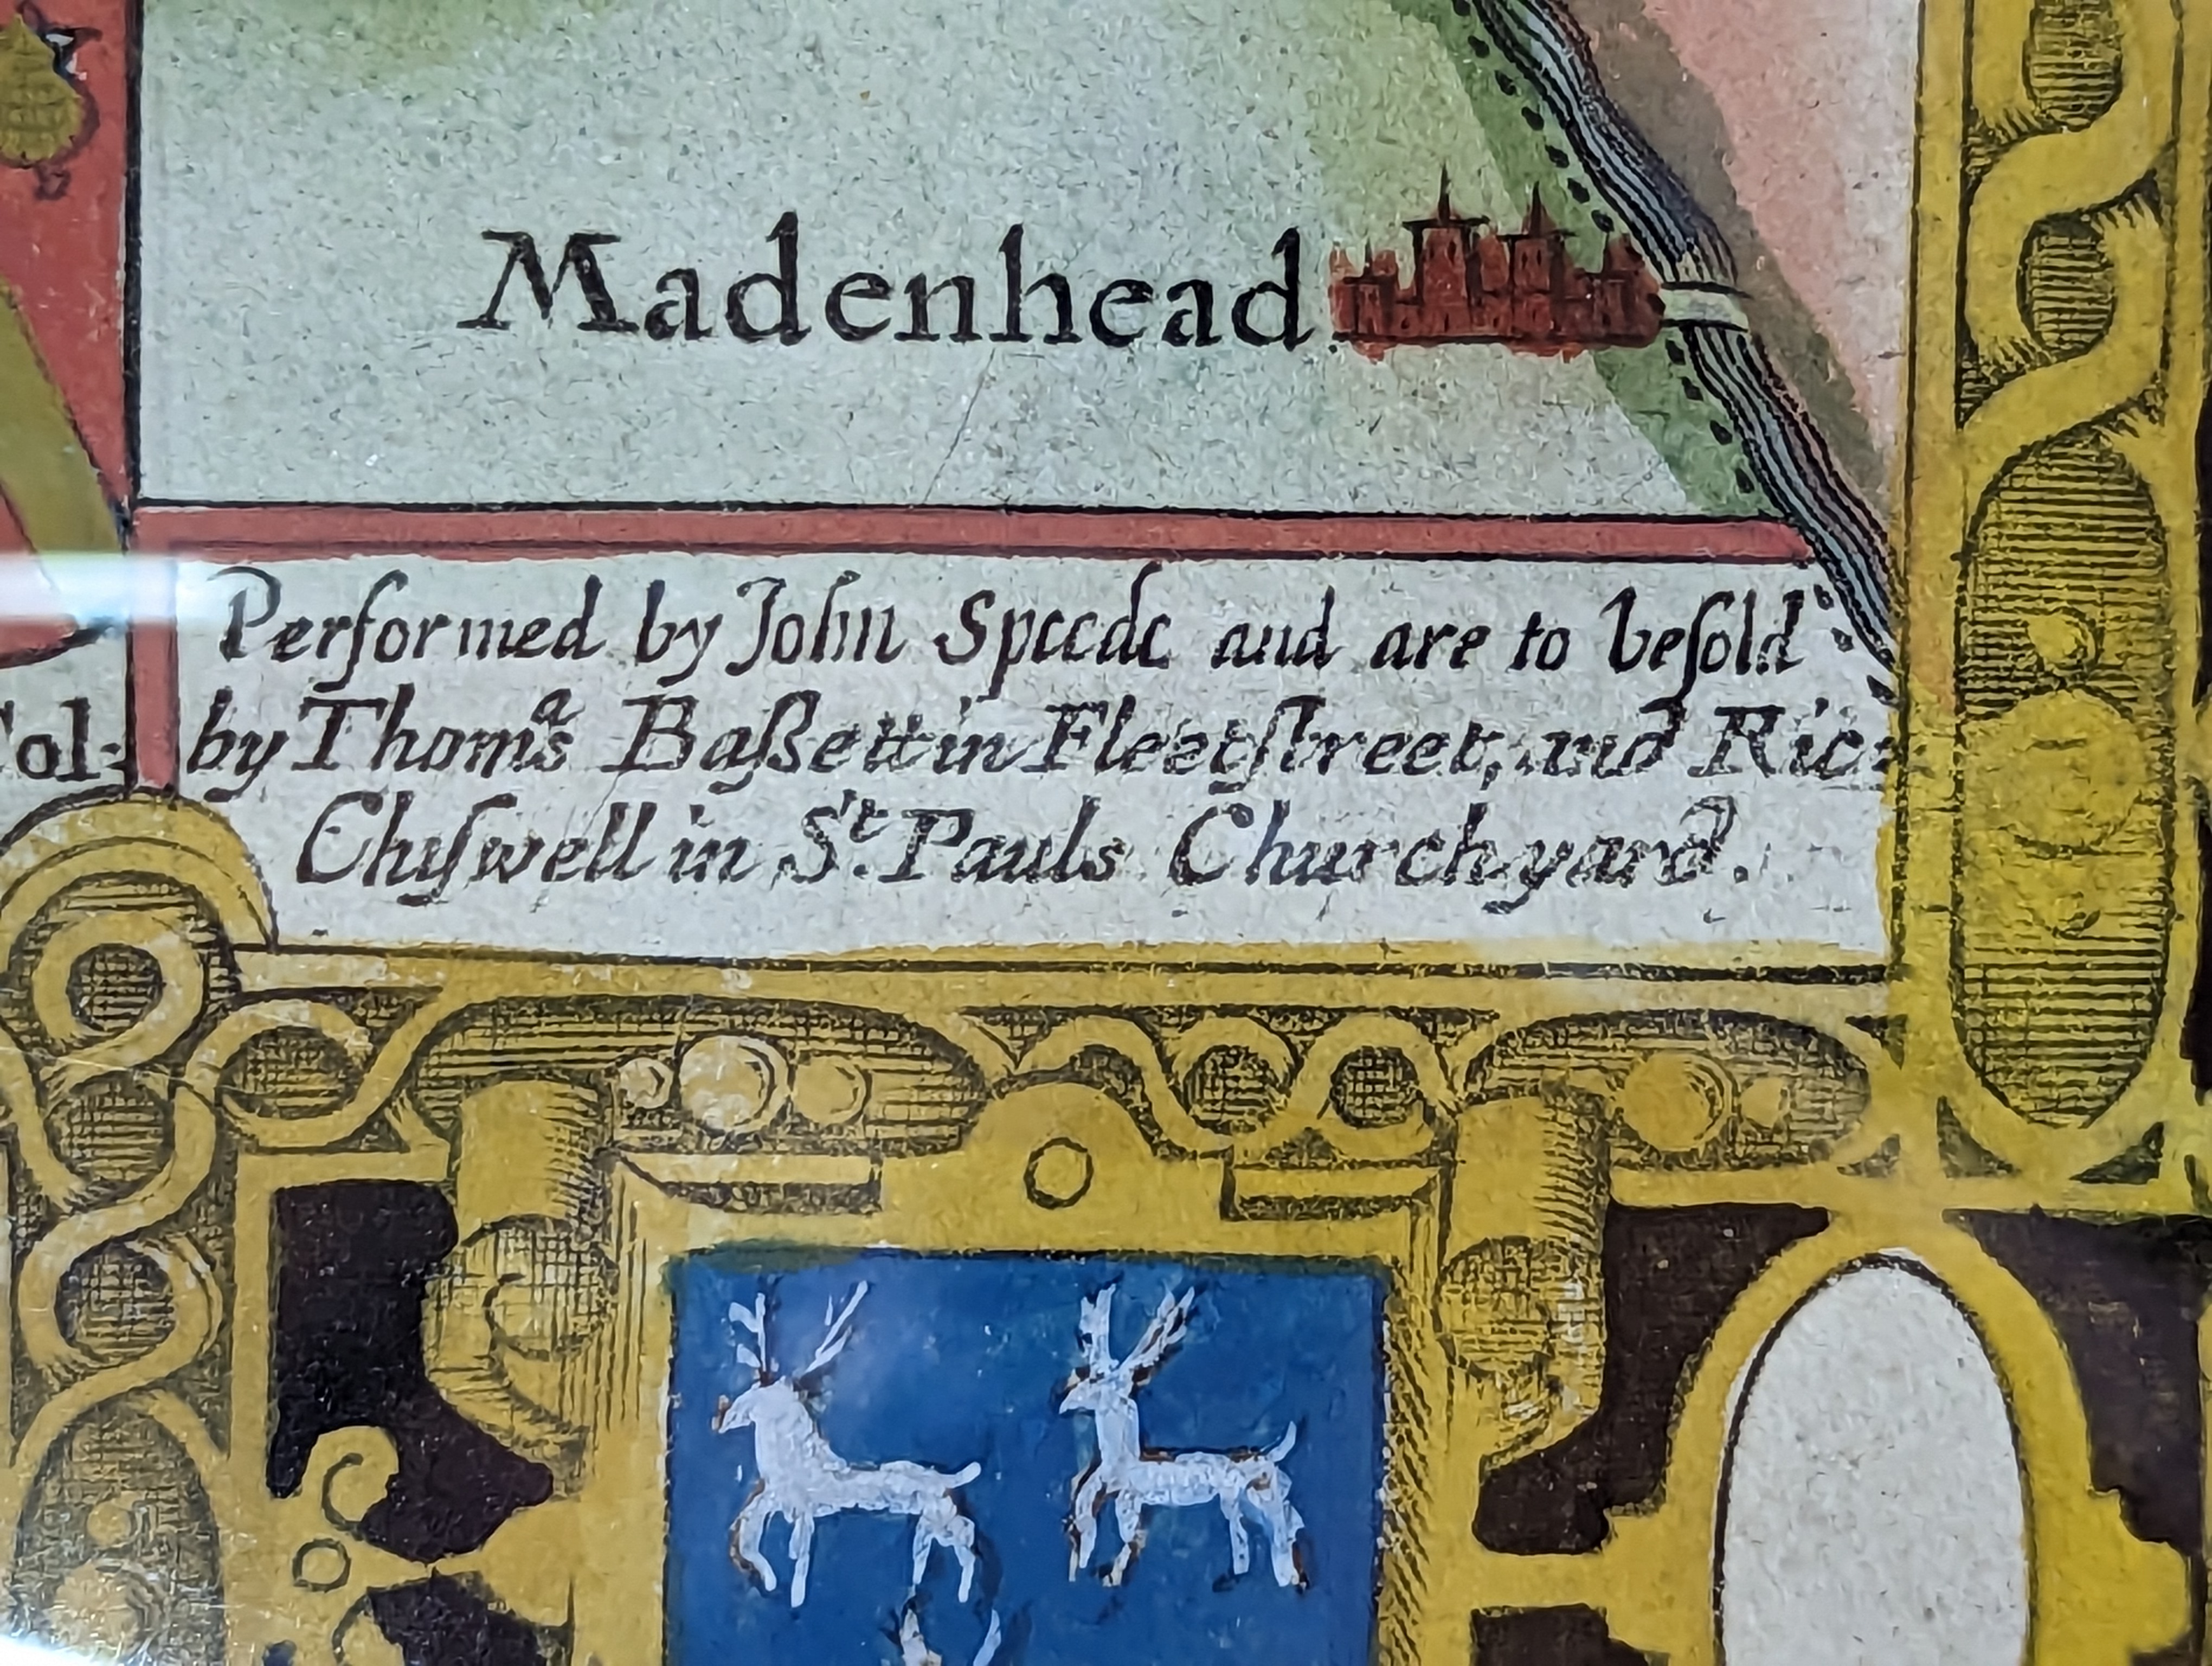 Madenhead
Performed by John Speede and are to beſold
by Thomˢᵃ Baßett in Fleetſtreet, and Ric:
Chyſwell in Sᵗ. Pauls Churchyard.
ol: